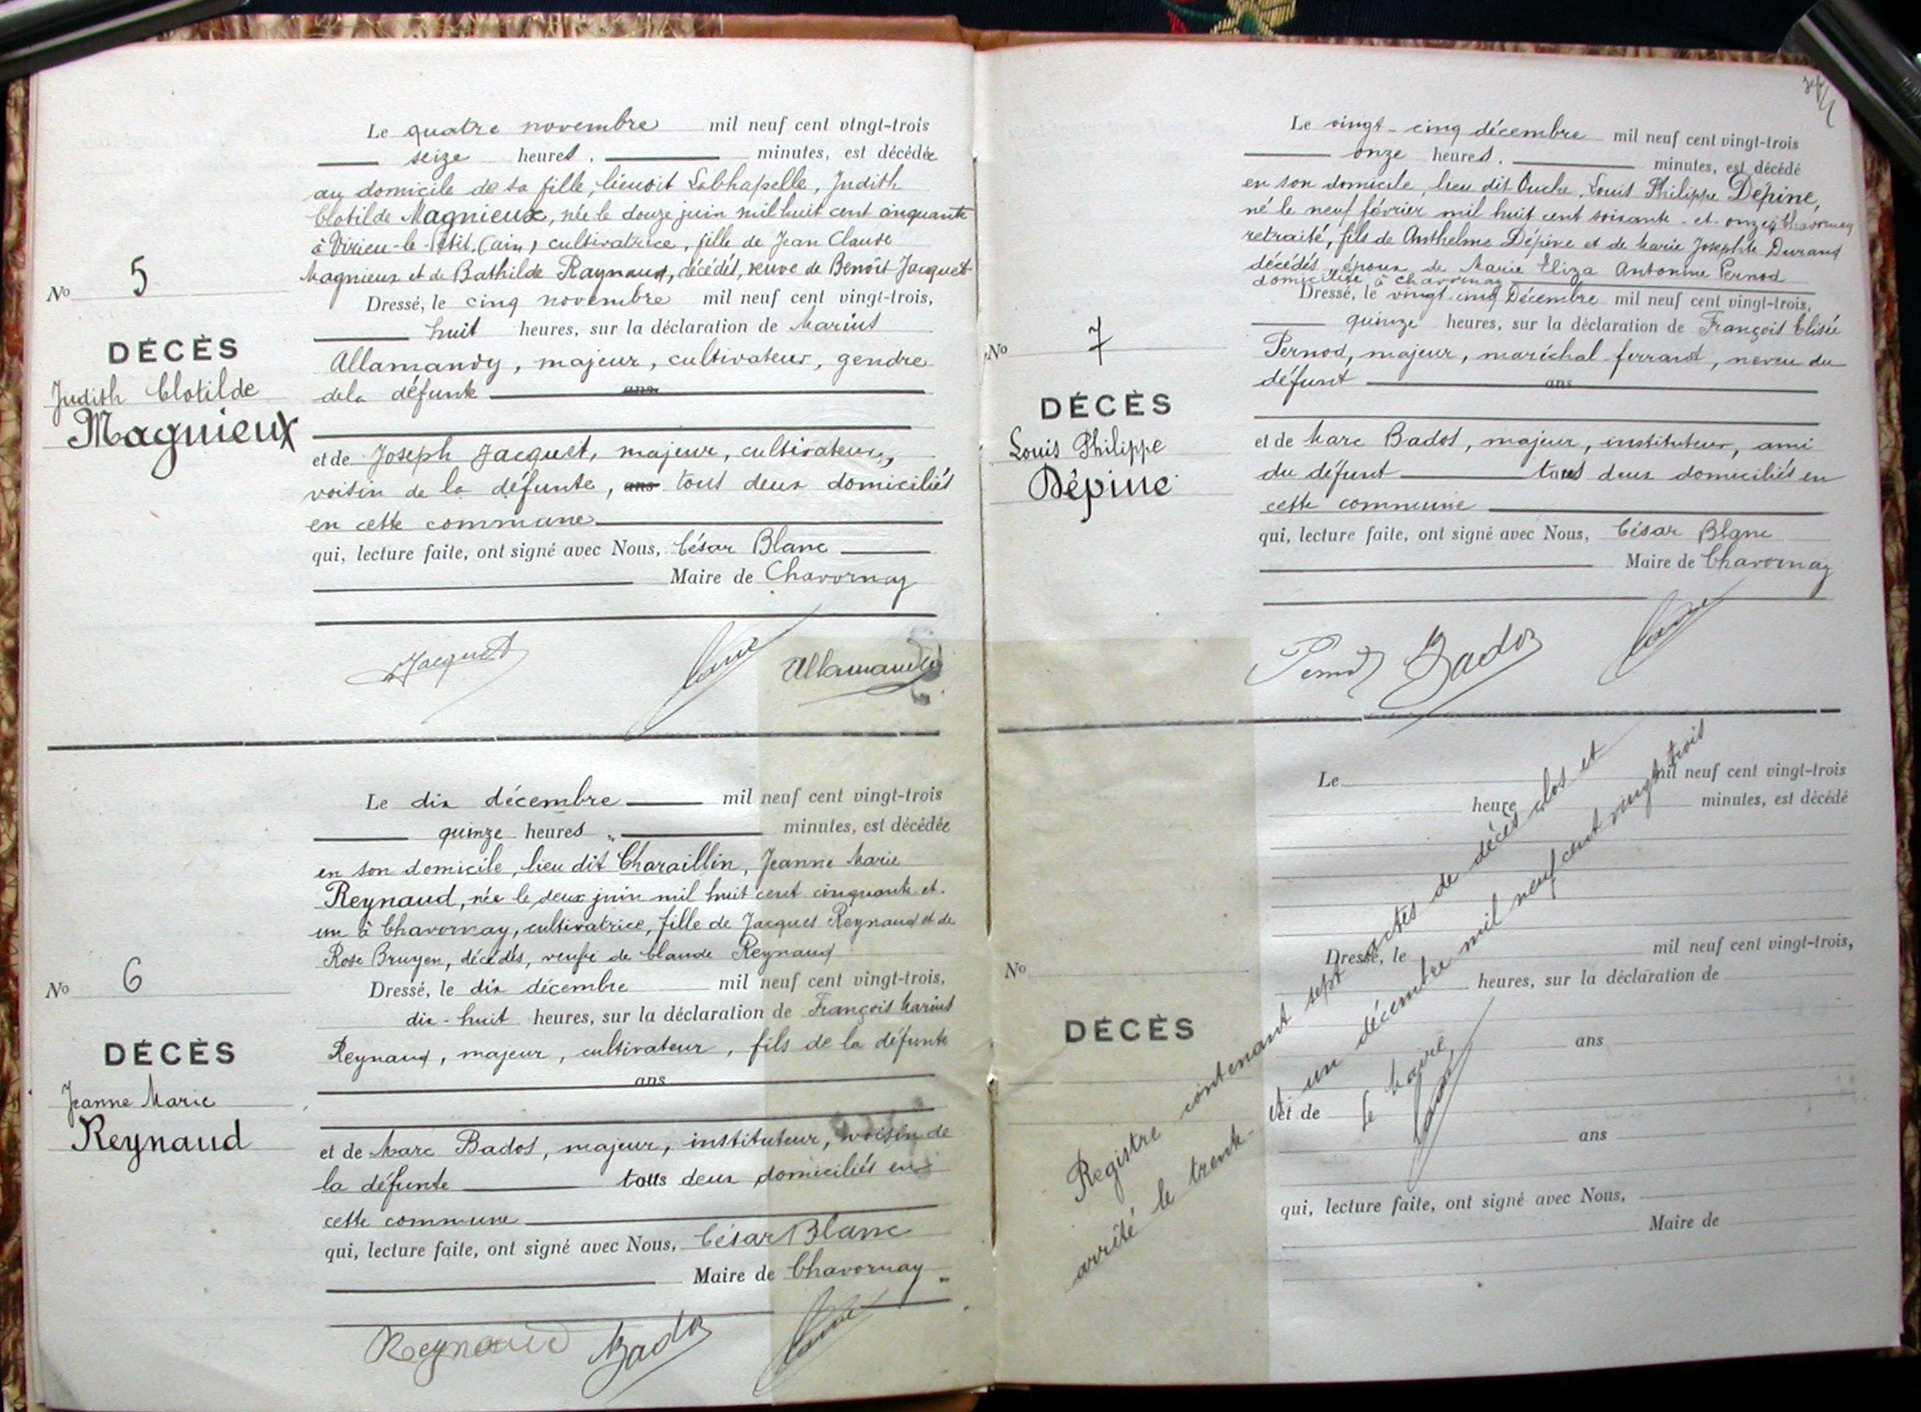 Le quatre novembre mil neuf cent vingt-trois
seize heures, minutes, est décédée
au domicile de sa fille, lieudit Labhapelle, Judith
Clotilde Magnieux, née le douze juin mil huit cent cinquante
à Virieu-le-Petit, (Ain), cultivatrice, fille de Jean Claude
Magnieux et de Bathilde Raynaud, décédés, veuve de Benoît Jacquet
No 5
Dressé, le cinq novembre mil neuf cent vingt-trois,
huit heures, sur la déclaration de Marius
DÉCÈS
Allamandy, majeur, cultivateur, gendre
Judith Clotilde
de la défunte ans
Magnieux
et de Joseph Jacquet, majeur, cultivateur,
voisin de la défunte, ans tous deux domiciliés
en cette commune
qui, lecture faite, ont signé avec Nous, César Blanc
Maire de Chavornay
Jacquet Allamandy
Le dix décembre mil neuf cent vingt-trois
quinze heures, minutes, est décédée
en son domicile, lieu dit Charaillin, Jeanne Marie
Reynaud, née le deux juin mil huit cent cinquante et
un à Chavornay, cultivatrice, fille de Jacques Reynaud et de
Rose Bruyer, décédés, veuve de Claude Reynaud
No 6
Dressé, le dix décembre mil neuf cent vingt-trois,
dix-huit heures, sur la déclaration de François Marius
DÉCÈS
Reynaud, majeur, cultivateur, fils de la défunte
ans
Jeanne Marie
Reynaud
et de Marc Bados, majeur, instituteur, voisin de
la défunte tous deux domiciliés en
cette commune
qui, lecture faite, ont signé avec Nous, César Blanc
Maire de Chavornay
Reynaud Bados
Le vingt-cinq décembre mil neuf cent vingt-trois
onze heures. minutes, est décédé
en son domicile, lieu dit Ouche, Louis Philippe Dépine,
né le neuf février mil huit cent soixante-et-onze à Chavornay
retraité, fils de Anthelme Dépine et de Marie Josephte Durand
décédés, époux de Marie Eliza Antonine Pernod
domiciliée à Chavornay
Dressé, le vingt-cinq Décembre mil neuf cent vingt-trois,
No 7
quinze heures, sur la déclaration de François Elisée
Pernod, majeur, maréchal ferrant, neveu du
défunt ans
DÉCÈS
Louis Philippe
Dépine
et de Marc Bados, majeur, instituteur, ami
du défunt tous deux domiciliés en
cette commune
qui, lecture faite, ont signé avec Nous, César Blanc
Maire de Chavornay
Pernod Bados
Le mil neuf cent vingt-trois
heure minutes, est décédé
Dressé, le mil neuf cent vingt-trois,
No
heures, sur la déclaration de
DÉCÈS
ans
et de
ans
qui, lecture faite, ont signé avec Nous,
Maire de
Registre contenant sept actes de décès clos et
arrêté le trente-et un décembre mil neuf cent vingt trois
Le Maire,